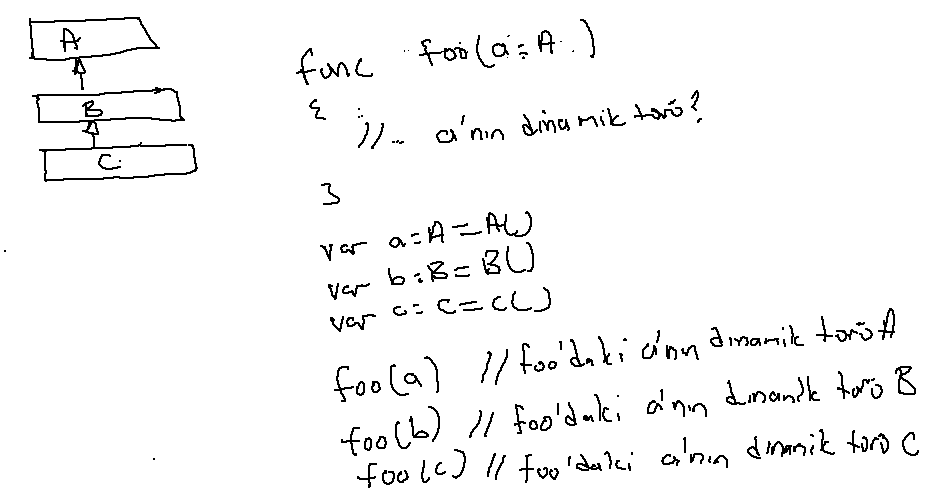 A
B
C
func foo(a: A.)
{ :
//.. a'nın dinamik türü?
}
var a: A = A()
var b: B = B()
var c: C = C()
foo(a) // foo'daki a'nın dinamik türü A
foo(b) // foo'daki a'nın dinamik türü B
foo(c) // foo'daki a'nın dinamik türü C